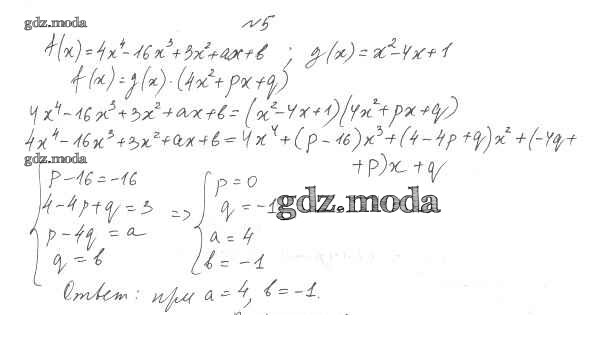 gdz.moda
№5
A(x)=4x⁴-16x³+3x²+ax+b ; g(x)=x²-4x+1
A(x)=g(x)·(4x²+px+q)
4x⁴-16x³+3x²+ax+b=(x²-4x+1)(4x²+px+q)
4x⁴-16x³+3x²+ax+b=4x⁴+(p-16)x³+(4-4p+q)x²+(-4q+
gdz.moda
+p)x+q
p-16=-16
4-4p+q=3
p-4q=a
q=b
=>
p=0
q=-1
gdz.moda
a=4
b=-1
Ответ: при a=4, b=-1.